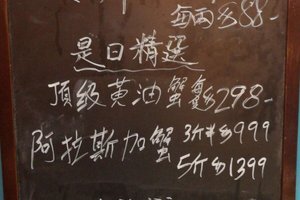 每両$88-
是日精選
頂級黄油蟹 $298-
阿拉斯加蟹 3斤半$999
5斤$1399